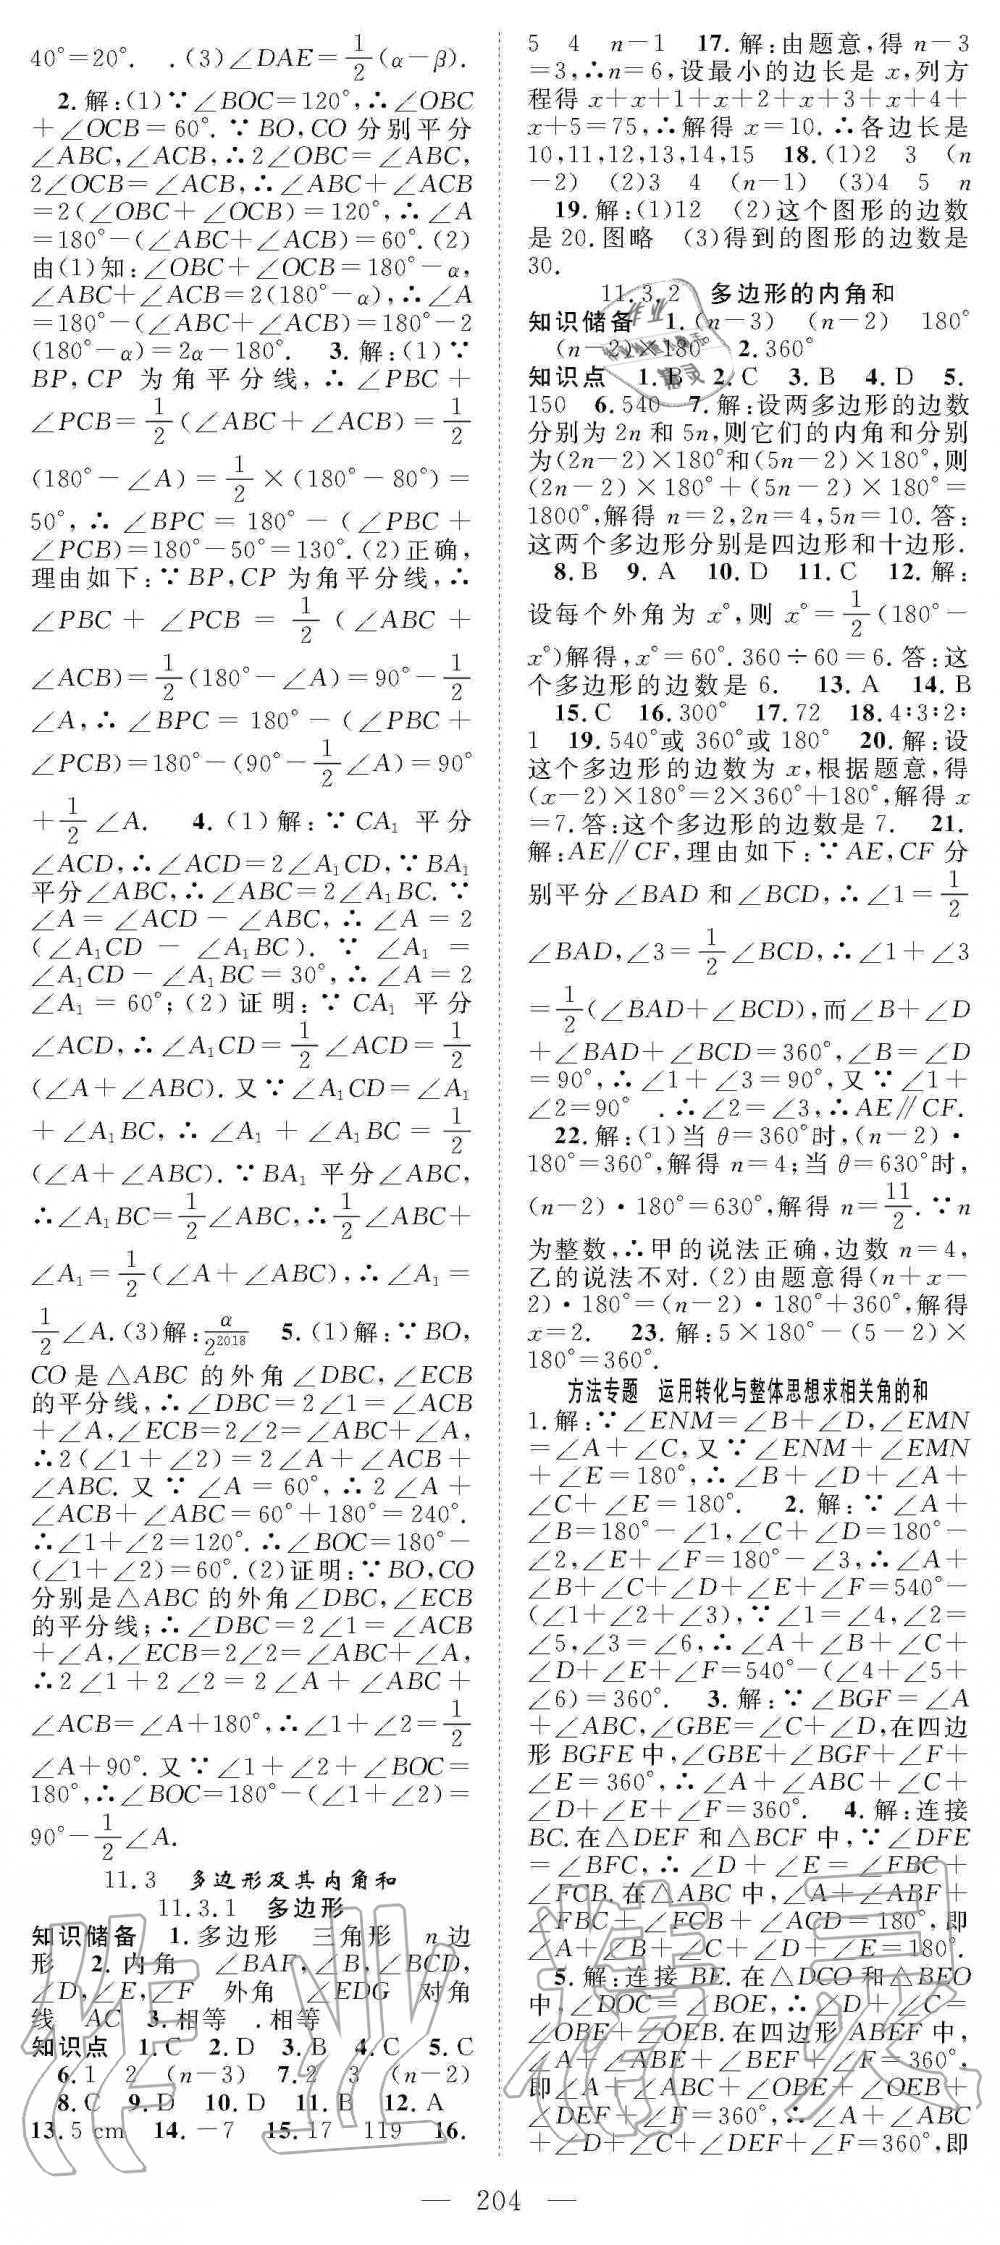 40°=20°. .(3)∠DAE=1/2(α-β).
2.解:(1)∵∠BOC=120°,∴∠OBC
+∠OCB=60°.∵BO,CO 分别平分
∠ABC,∠ACB,∴2∠OBC=∠ABC,
2∠OCB=∠ACB,∴∠ABC+∠ACB
=2(∠OBC+∠OCB)=120°,∴∠A
=180°-(∠ABC+∠ACB)=60°.(2)
由(1)知:∠OBC+∠OCB=180°-α,
∠ABC+∠ACB=2(180°-α),∴∠A
=180°-(∠ABC+∠ACB)=180°-2
(180°-α)=2α-180°. 3.解:(1)∵
BP,CP 为角平分线,∴∠PBC+
∠PCB=1/2(∠ABC+∠ACB)=1/2
(180°-∠A)=1/2×(180°-80°)=
50°,∴∠BPC=180°-(∠PBC+
∠PCB)=180°-50°=130°.(2)正确,
理由如下:∵BP,CP 为角平分线,∴
∠PBC+∠PCB=1/2(∠ABC+
∠ACB)=1/2(180°-∠A)=90°-1/2
∠A,∴∠BPC=180°-(∠PBC+
∠PCB)=180°-(90°-1/2∠A)=90°
+1/2∠A. 4.(1)解:∵CA₁ 平分
∠ACD,∴∠ACD=2∠A₁CD,∵BA₁
平分∠ABC,∴∠ABC=2∠A₁BC.∵
∠A=∠ACD-∠ABC,∴∠A=2
(∠A₁CD-∠A₁BC).∵∠A₁=
∠A₁CD-∠A₁BC=30°,∴∠A=2
∠A₁=60°;(2)证明:∵CA₁ 平分
∠ACD,∴∠A₁CD=1/2∠ACD=1/2
(∠A+∠ABC).又∵∠A₁CD=∠A₁
+∠A₁BC,∴∠A₁+∠A₁BC=1/2
(∠A+∠ABC).∵BA₁ 平分∠ABC,
∴∠A₁BC=1/2∠ABC,∴1/2∠ABC+
∠A₁=1/2(∠A+∠ABC),∴∠A₁=
1/2∠A.(3)解:α/2²⁰¹⁸ 5.(1)解:∵BO,
CO是△ABC 的外角∠DBC,∠ECB
的平分线,∴∠DBC=2∠1=∠ACB
+∠A,∠ECB=2∠2=∠ABC+∠A,
∴2(∠1+∠2)=2∠A+∠ACB+
∠ABC.又∵∠A=60°,∴2∠A+
∠ACB+∠ABC=60°+180°=240°.
∴∠1+∠2=120°.∴∠BOC=180°-
(∠1+∠2)=60°.(2)证明:∵BO,CO
分别是△ABC 的外角∠DBC,∠ECB
的平分线;∴∠DBC=2∠1=∠ACB
+∠A,∠ECB=2∠2=∠ABC+∠A,
∴2∠1+2∠2=2∠A+∠ABC+
∠ACB=∠A+180°,∴∠1+∠2=1/2
∠A+90°.又∵∠1+∠2+∠BOC=
180°,∴∠BOC=180°-(∠1+∠2)=
90°-1/2∠A.
11.3 多边形及其内角和
11.3.1 多边形
知识储备 1.多边形 三角形 n边
形 2.内角 ∠BAF,∠B,∠BCD,
∠D,∠E,∠F 外角 ∠EDG 对角
线 AC 3.相等 .相等
知识点 1.C 2.D 3.B 4.C 5.C
6.1 2 (n-3) 7.2 3 (n-2)
8.C 9.D 10.D 11.B 12.A
13.5 cm 14.-7 15.17 119 16.
5 4 n-1 17.解:由题意,得 n-3
=3,∴n=6,设最小的边长是 x,列方
程得 x+x+1+x+2+x+3+x+4+
x+5=75,∴解得 x=10.∴各边长是
10,11,12,13,14,15 18.(1)2 3 (n
-2) (2)3 4 (n-1) (3)4 5 n
19.解:(1)12 (2)这个图形的边数
是20.图略 (3)得到的图形的边数是
30.
11.3.2 多边形的内角和
知识储备 1.(n-3) (n-2) 180°
(n-2)×180° 2.360°
知识点 1.B 2.C 3.B 4.D 5.
150 6.540 7.解:设两多边形的边数
分别为 2n 和 5n,则它们的内角和分别
为(2n-2)×180°和(5n-2)×180°,则
(2n-2)×180°+(5n-2)×180°=
1800°,解得 n=2,2n=4,5n=10.答:
这两个多边形分别是四边形和十边形.
8.B 9.A 10.D 11.C 12.解:
设每个外角为 x°,则 x°=1/2(180°-
x°)解得,x°=60°.360÷60=6.答:这
个多边形的边数是 6. 13.A 14.B
15.C 16.300° 17.72 18.4∶3∶2∶
1 19.540°或 360°或 180° 20.解:设
这个多边形的边数为 x,根据题意,得
(x-2)×180°=2×360°+180°,解得 x
=7.答:这个多边形的边数是 7. 21.
解:AE∥CF,理由如下:∵AE,CF 分
别平分∠BAD 和∠BCD,∴∠1=1/2
∠BAD,∠3=1/2∠BCD,∴∠1+∠3
=1/2(∠BAD+∠BCD),而∠B+∠D
+∠BAD+∠BCD=360°,∠B=∠D
=90°,∴∠1+∠3=90°,又∵∠1+
∠2=90° .∴∠2=∠3,∴AE∥CF.
22.解:(1)当 θ=360°时,(n-2)·
180°=360°,解得 n=4;当 θ=630°时,
(n-2)·180°=630°,解得 n=11/2.∵n
为整数,∴甲的说法正确,边数 n=4,
乙的说法不对.(2)由题意得(n+x-
2)·180°=(n-2)·180°+360°,解得
x=2. 23.解:5×180°-(5-2)×
180°=360°.
方法专题 运用转化与整体思想求相关角的和
1.解:∵∠ENM=∠B+∠D,∠EMN
=∠A+∠C,又∵∠ENM+∠EMN
+∠E=180°,∴∠B+∠D+∠A+
∠C+∠E=180°. 2.解:∵∠A+
∠B=180°-∠1,∠C+∠D=180°-
∠2,∠E+∠F=180°-∠3,∴∠A+
∠B+∠C+∠D+∠E+∠F=540°-
(∠1+∠2+∠3),∵∠1=∠4,∠2=
∠5,∠3=∠6,∴∠A+∠B+∠C+
∠D+∠E+∠F=540°-(∠4+∠5+
∠6)=360°. 3.解:∵∠BGF=∠A
+∠ABC,∠GBE=∠C+∠D,在四边
形 BGFE 中,∠GBE+∠BGF+∠F+
∠E=360°,∴∠A+∠ABC+∠C+
∠D+∠E+∠F=360°. 4.解:连接
BC.在△DEF 和△BCF 中,∵∠DFE
=∠BFC,∴∠D+∠E=∠FBC+
∠FCB.在△ABC 中,∠A+∠ABF+
∠FBC+∠FCB+∠ACD=180°,即
∠A+∠B+∠C+∠D+∠E=180°.
5.解:连接 BE.在△DCO 和△BEO
中,∠DOC=∠BOE,∴∠D+∠C=
∠OBE+∠OEB.在四边形 ABEF 中,
∠A+∠ABE+∠BEF+∠F=360°,
即∠A+∠ABC+∠OBE+∠OEB+
∠DEF+∠F=360°,∴∠A+∠ABC
+∠D+∠C+∠DEF+∠F=360°,即
— 204 —
作业精灵